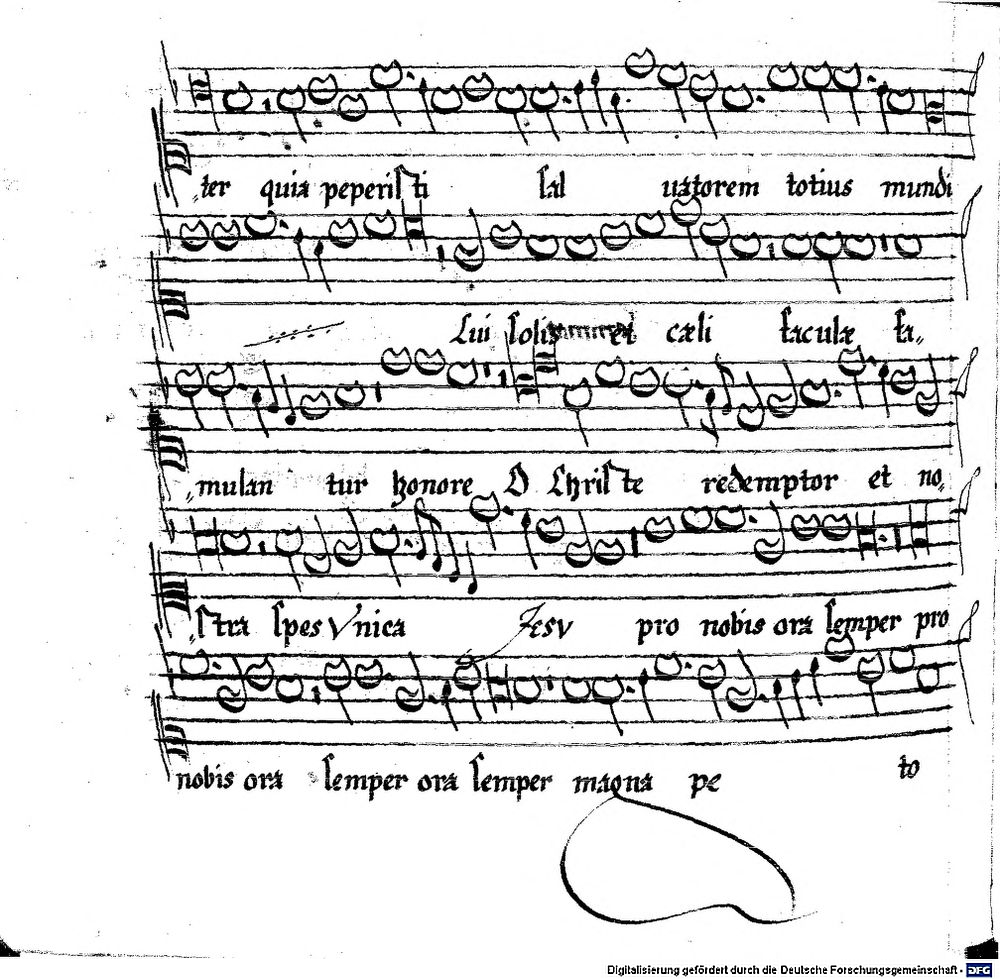 ter quia peperisti sal uatorem totius mundi
Cui solis et cæli facula fa„
„mulan tur honore O Christe redemptor et no„
„stra spes Vnica Jesu pro nobis ora semper pro
nobis ora semper ora semper magna pe to
Digitalisierung gefördert durch die Deutsche Forschungsgemeinschaft - DFG